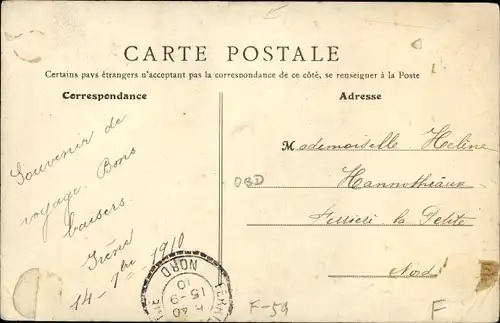 CARTE POSTALE
Certains pays étrangers n'acceptant pas la correspondance de ce côté, se renseigner à la Poste
Correspondance
Adresse
Souvenir de
voyage Bons
baisers.
Irène
14-7bre 1910
Mademoiselle Heline
Hannothiaux
Ferrière la Petite
Nord
OBD
NORD
15-9
10
F-59
F